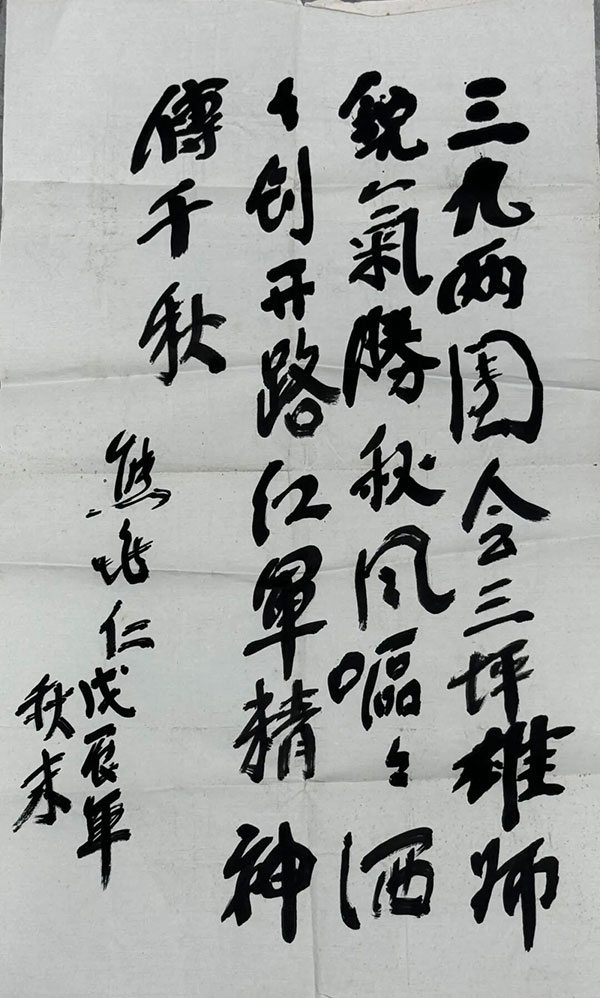 三九两團会三坪雄师
銳氣勝秋风嘔々洒
々创开路红軍精神
傳千秋
熊兆仁戊辰年
秋末